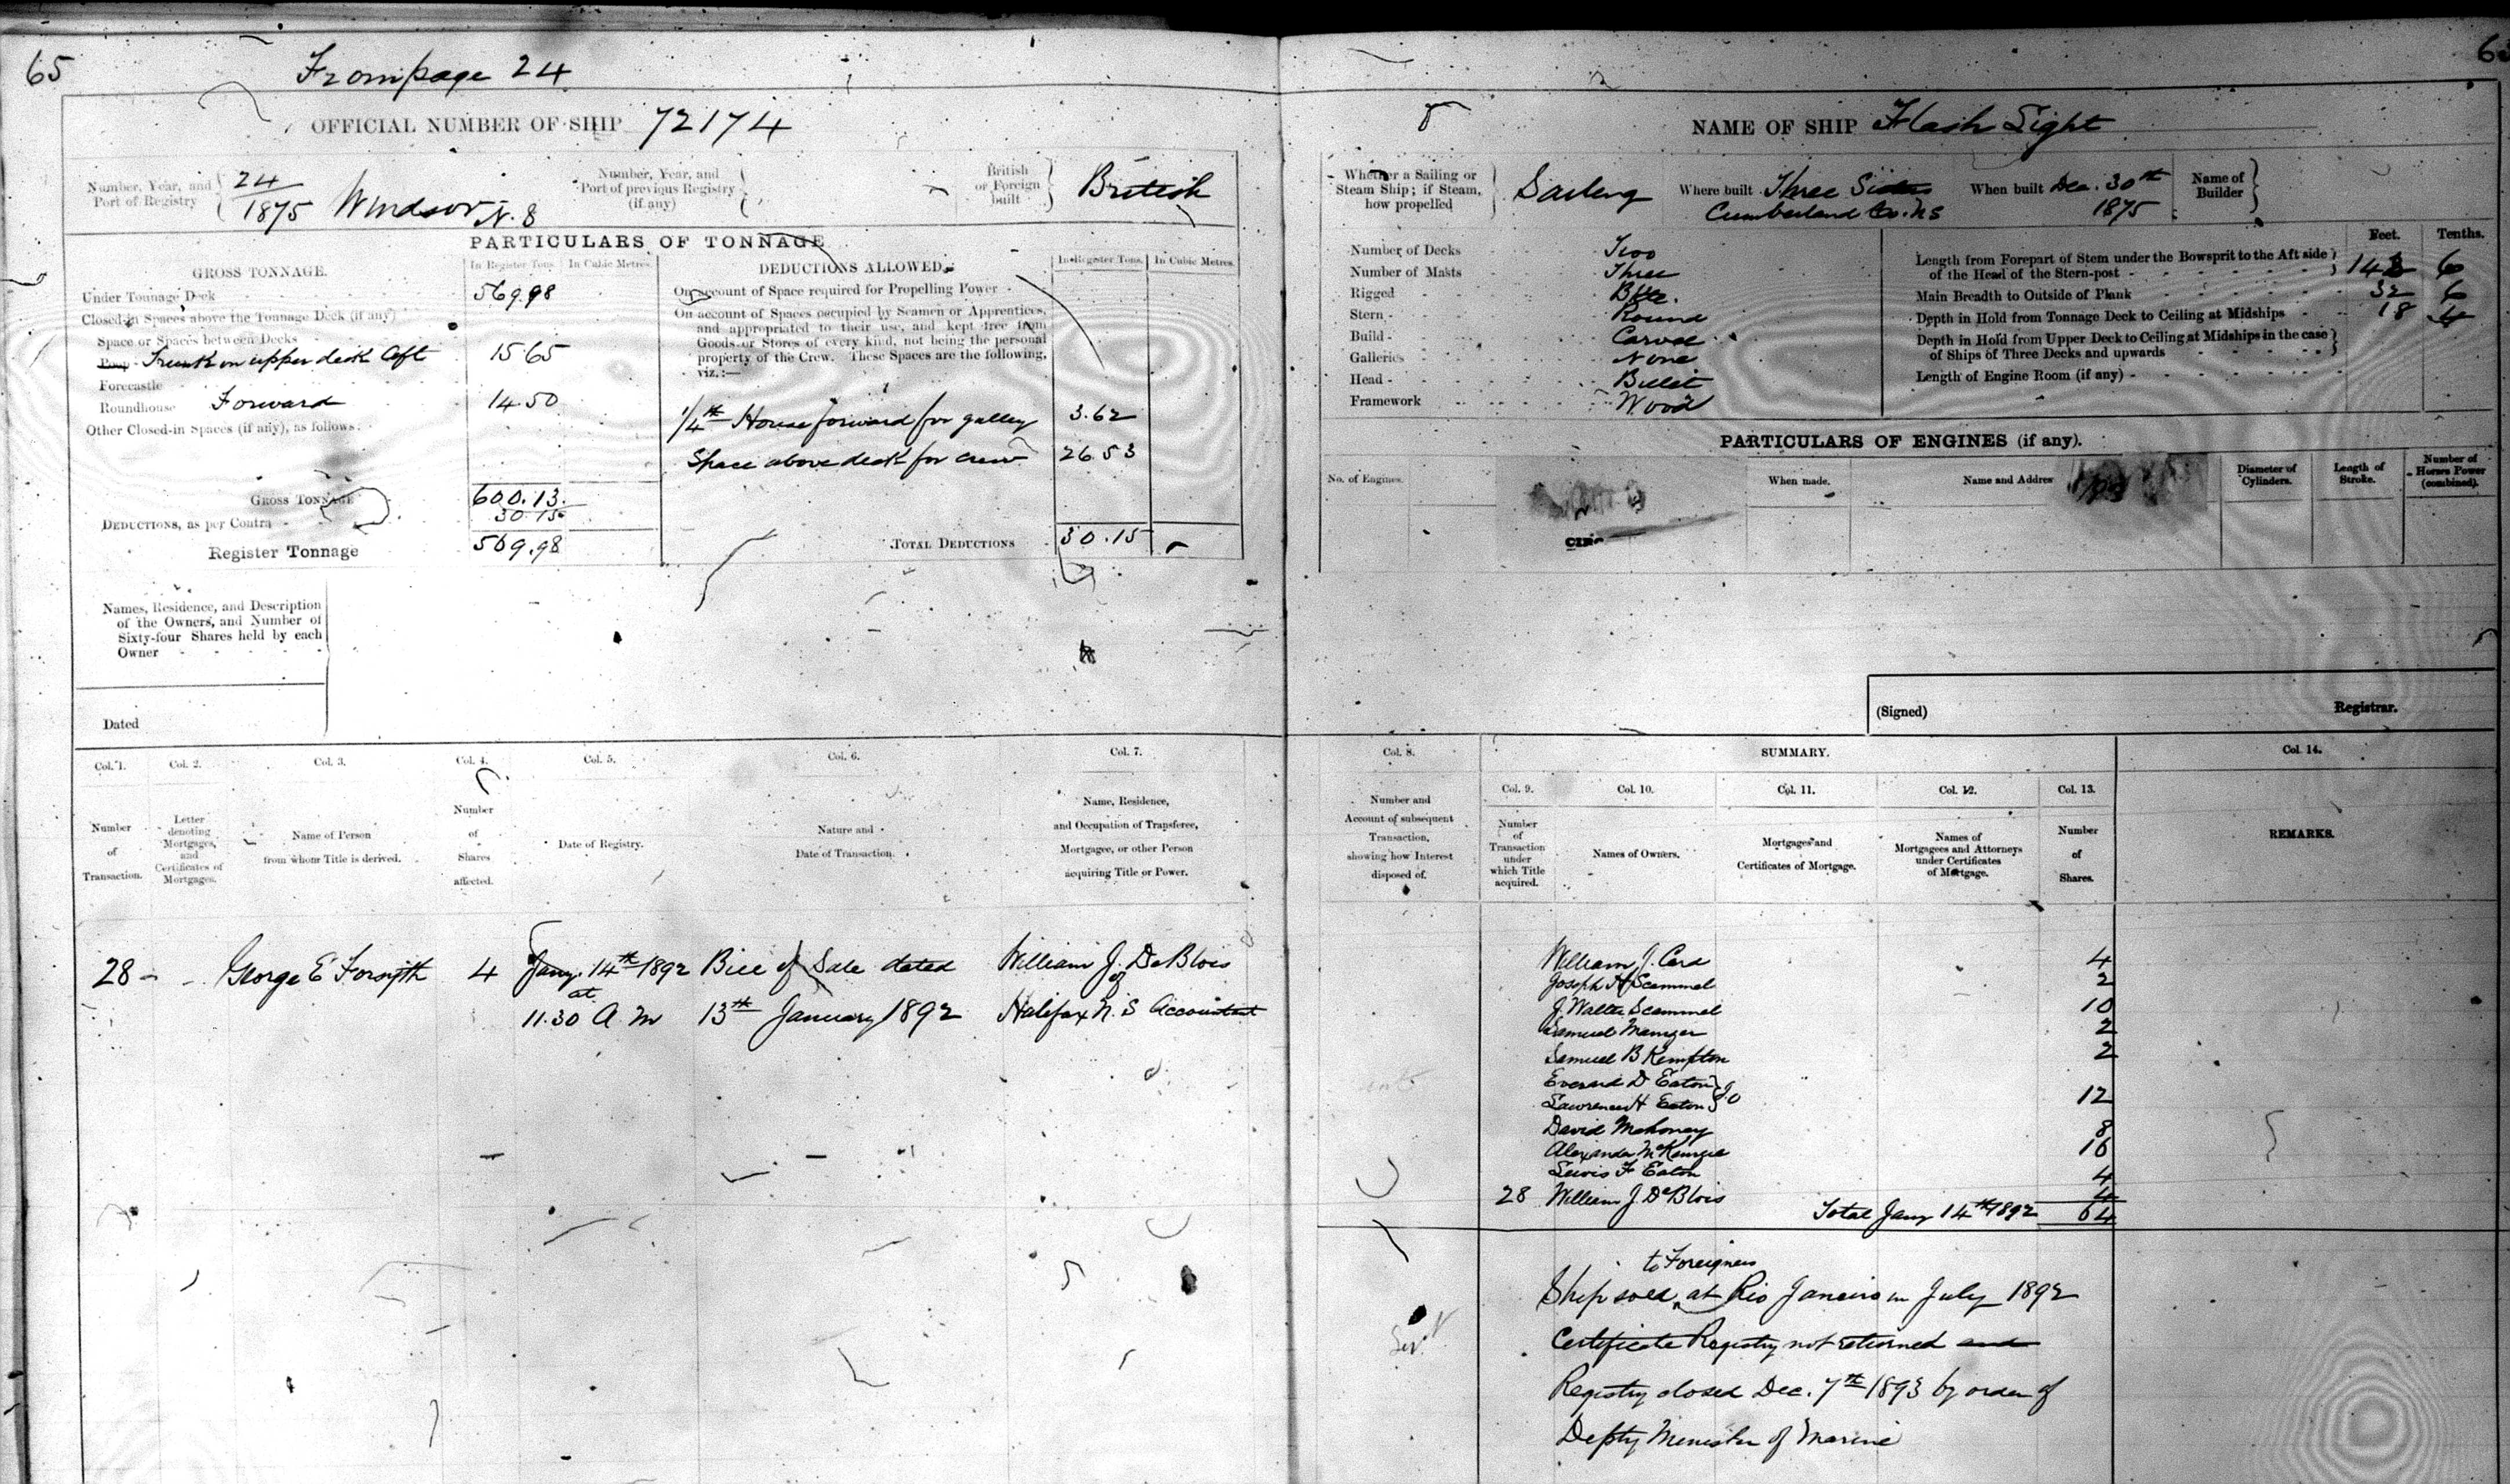 65
From page 24
OFFICIAL NUMBER OF SHIP 72174
Number, Year, and Port of Registry
24/1875 Windsor N.S
Number, Year, and Port of previous Registry (if any)
British or Foreign built
British
PARTICULARS OF TONNAGE
GROSS TONNAGE.
In Register Tons.
In Cubic Metres.
Under Tonnage Deck 569.98
Closed-in Spaces above the Tonnage Deck (if any)
Space or Spaces between Decks
Poop Trunk on upper deck Aft 15 65
Forecastle
Roundhouse Forward 14 50
Other Closed-in Spaces (if any), as follows:
GROSS TONNAGE 600.13
DEDUCTIONS, as per Contra 30.15
Register Tonnage 569.98
DEDUCTIONS ALLOWED.
In Register Tons.
In Cubic Metres.
On account of Space required for Propelling Power
On account of Spaces occupied by Seamen or Apprentices,
and appropriated to their use, and kept free from
Goods or Stores of every kind, not being the personal
property of the Crew. These Spaces are the following,
viz.:—
1/4th House forward for galley 3.62
Space above deck for crew 26.53
TOTAL DEDUCTIONS 30.15
Names, Residence, and Description
of the Owners, and Number of
Sixty-four Shares held by each
Owner
Dated
Col. 1.
Number of Transaction.
Col. 2.
Letter denoting Mortgages, and Certificates of Mortgages.
Col. 3.
Name of Person from whom Title is derived.
Col. 4.
Number of Shares affected.
Col. 5.
Date of Registry.
Col. 6.
Nature and Date of Transaction.
Col. 7.
Name, Residence, and Occupation of Transferee, Mortgagee, or other Person acquiring Title or Power.
28 - George E Forsyth 4 Jany. 14th 1892 Bill of Sale dated William J. DeBlois of
at 11.30 A.M 13th January 1892 Halifax N.S Accountant
NAME OF SHIP Flash Light
Whether a Sailing or Steam Ship; if Steam, how propelled
Sailing
Where built Three Sisters
Cumberland Co. NS
When built Dec. 30th
1875
Name of Builder
Number of Decks Two
Number of Masts Three
Rigged Bktn.
Stern Round
Build Carvel
Galleries None
Head Billet
Framework Wood
Feet. Tenths.
Length from Forepart of Stem under the Bowsprit to the Aft side
of the Head of the Stern-post 148 6
Main Breadth to Outside of Plank 32 6
Depth in Hold from Tonnage Deck to Ceiling at Midships 18 4
Depth in Hold from Upper Deck to Ceiling at Midships in the case
of Ships of Three Decks and upwards
Length of Engine Room (if any)
PARTICULARS OF ENGINES (if any).
No. of Engines.
When made.
Name and Addres
Diameter of Cylinders.
Length of Stroke.
Number of Horses Power (combined).
(Signed)
Registrar.
Col. 8.
Number and Account of subsequent Transaction, showing how Interest disposed of.
SUMMARY.
Col. 9.
Number of Transaction under which Title acquired.
Col. 10.
Names of Owners.
Col. 11.
Mortgages and Certificates of Mortgage.
Col. 12.
Names of Mortgagees and Attorneys under Certificates of Mortgage.
Col. 13.
Number of Shares.
Col. 14.
REMARKS.
William J. Card 4
Joseph H Scammel 2
J. Walter Scammel 10
Samuel 2
Samuel B Kempton 2
Everard D Eaton
Lawrence H Eaton J.O 12
David Mahoney 8
Alexander McKenzie 16
Lewis F Eaton 4
28 William J DeBlois 4
Total Jany 14th 1892 64
to Foreigners
Ship sold at Rio Janeiro in July 1892
Certificate Registry not returned and
Registry closed Dec. 7th 1893 by order of
Depty Minister of Marine